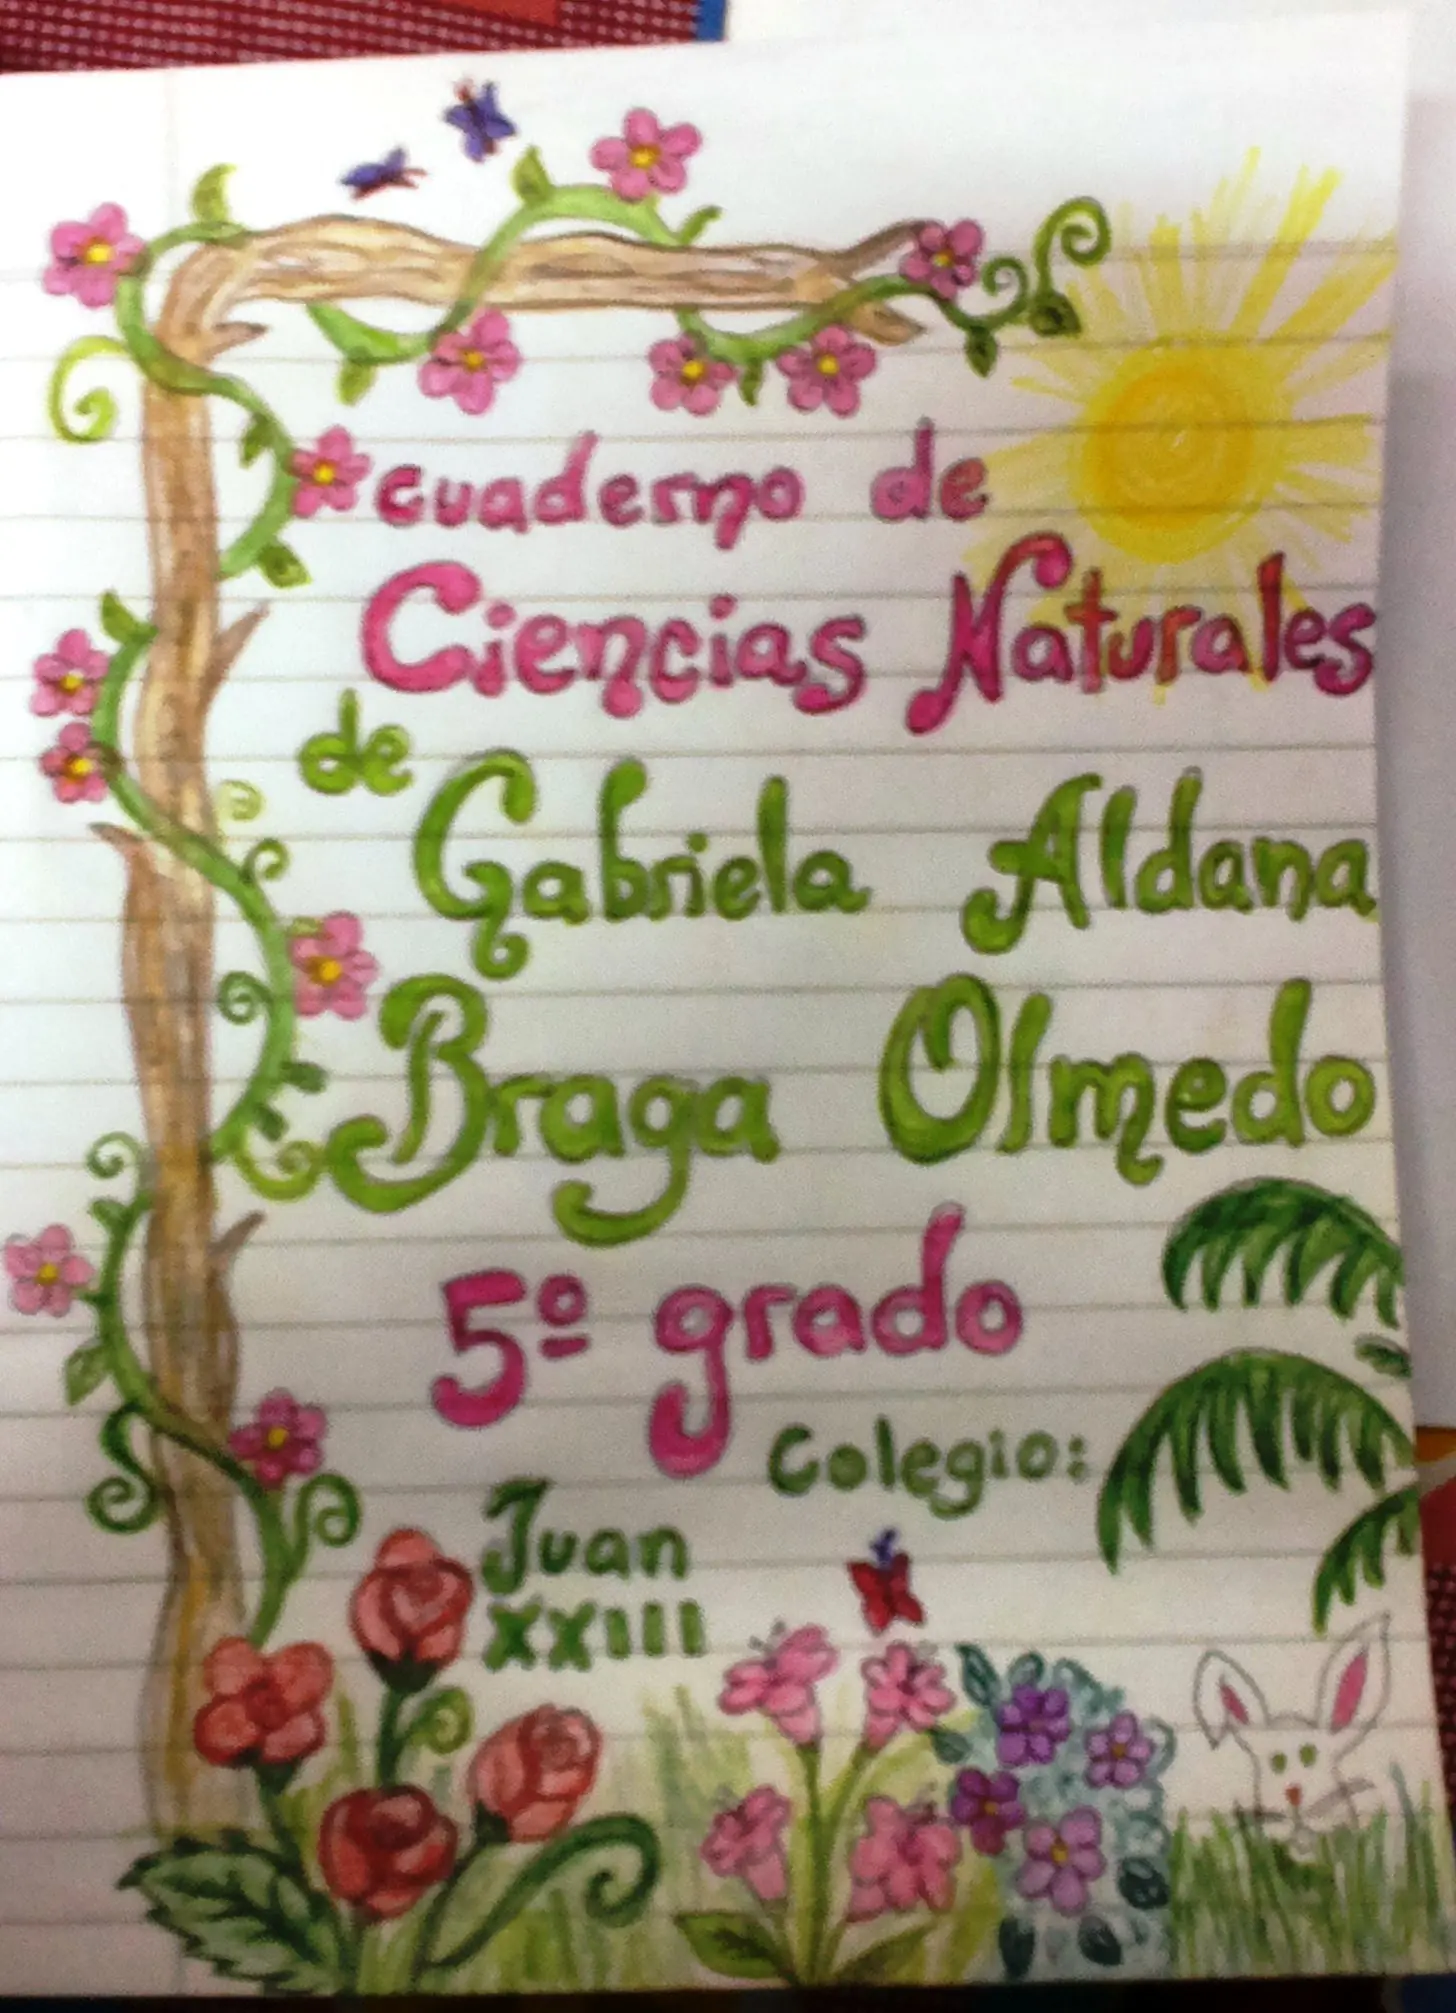 cuaderno de
Ciencias Naturales
de
Gabriela Aldana
Braga Olmedo
5º grado
Colegio:
Juan
XXIII